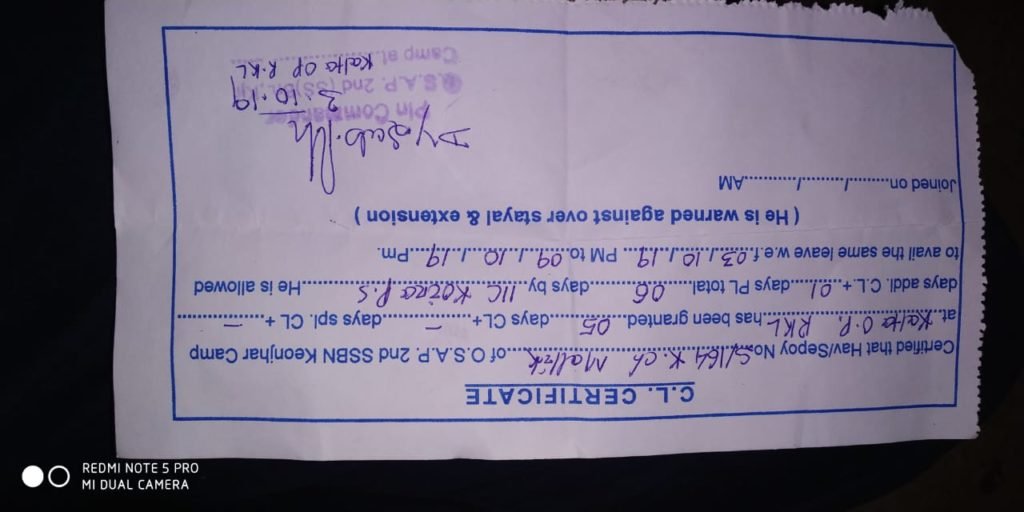 C.L. CERTIFICATE
Certified that Hav/Sepoy No S/164 K. Ch Mallik of O.S.A.P. 2nd SSBN Keonjhar Camp
at Kalta O.P. RKL has been granted 05 days CL+ – days spl. CL + –
days addl. C.L.+ 01 days PL total 06 days by IIC Koira P.S He is allowed
to avail the same leave w.e.f 03/10/19 PM to 09/10/19 Pm.
( He is warned against over stayal & extension )
Joined on........./........./.........AM
Dy Sub.
Pin Commander
3.10.19
O.S.A.P. 2nd (SS)
Kalta OP R.KL
Camp at
REDMI NOTE 5 PRO
MI DUAL CAMERA